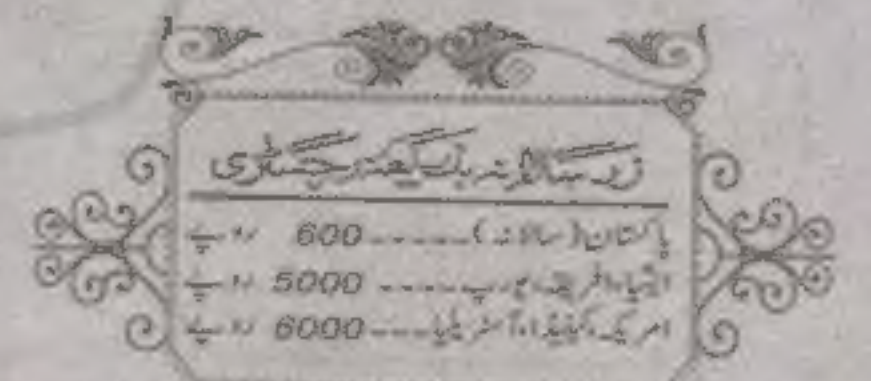 زرسالانہ بذریعہ رجسٹری
پاکستان (سالانہ) ----- 600 روپے
ایشیا، افریقہ، یورپ ----- 5000 روپے
امریکہ، کینیڈا، آسٹریلیا ---- 6000 روپے